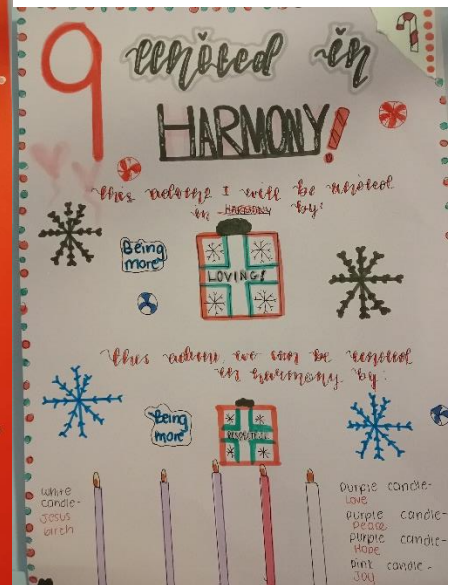 9 united in
HARMONY!
this advent I will be united
in HARMONY by:
Being
more
LOVING!
this advent, we can be united
in harmony by:
Being
more
white
candle-
Jesus
birth
purple candle-
Love
purple candle-
Peace
purple candle-
Hope
pink candle-
JOY